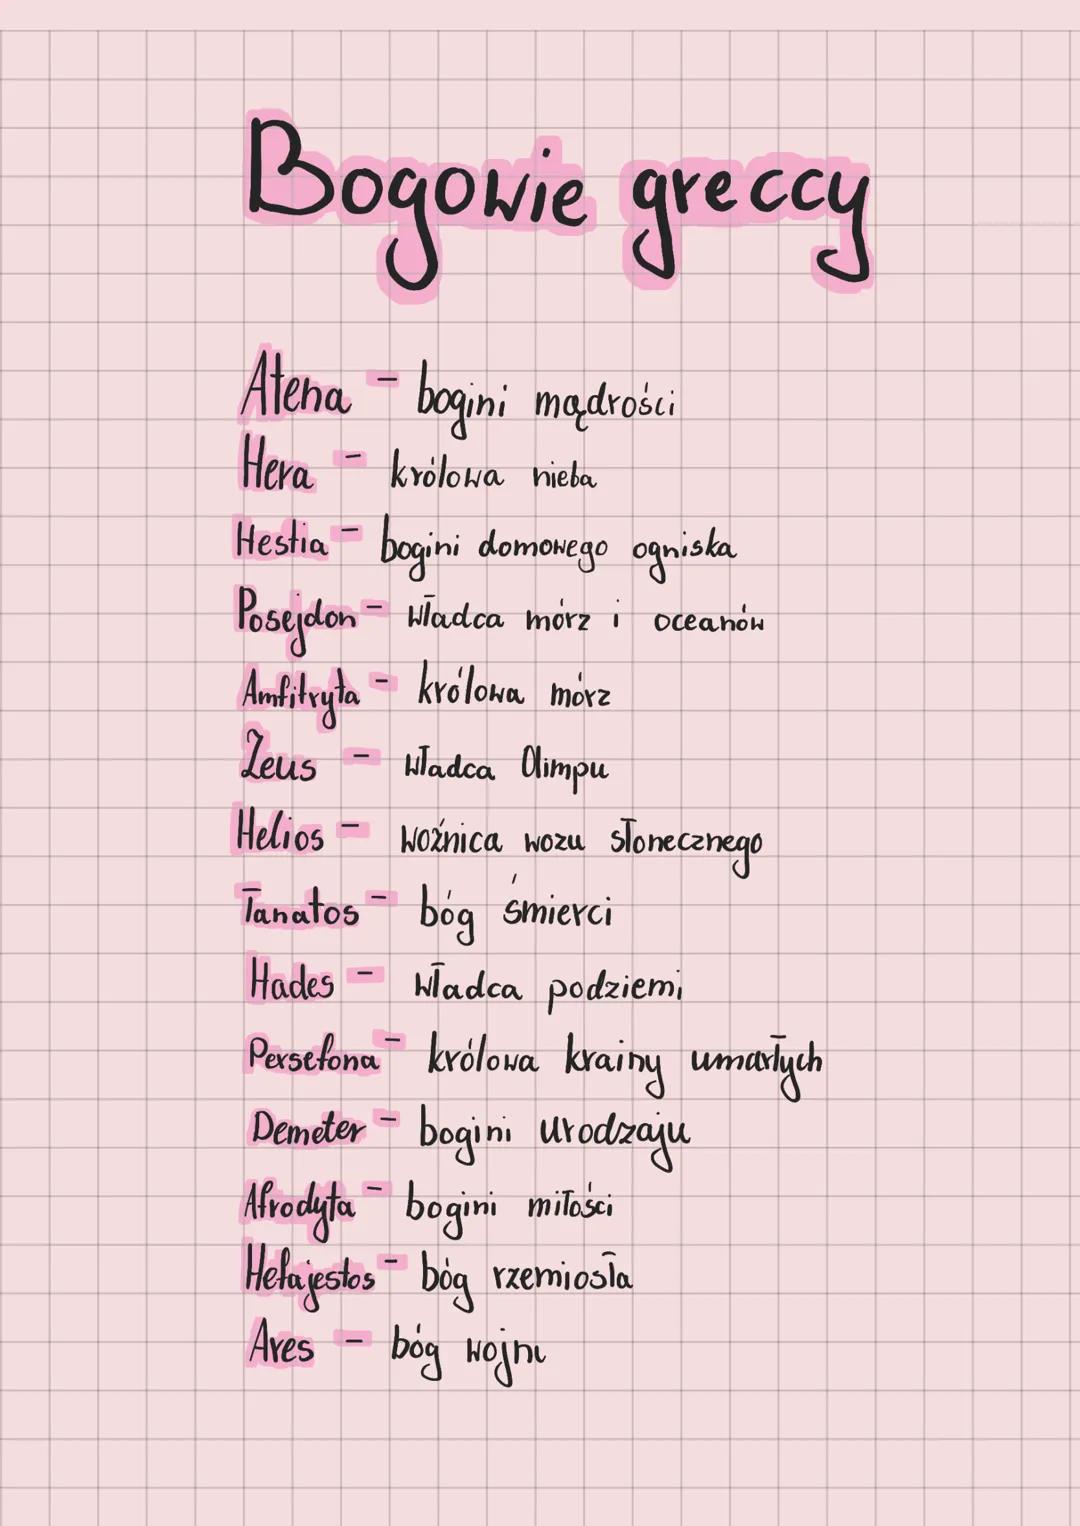 Bogowie greccy
Atena - bogini mądrości
Hera - królowa nieba
Hestia - bogini domowego ogniska
Posejdon - władca mórz i oceanów
Amfitryta - królowa mórz
Zeus - władca Olimpu
Helios - woźnica wozu słonecznego
Tanatos - bóg śmierci
Hades - władca podziemi
Persefona - królowa krainy umarłych
Demeter - bogini urodzaju
Afrodyta - bogini miłości
Hefajestos - bóg rzemiosła
Ares - bóg wojny